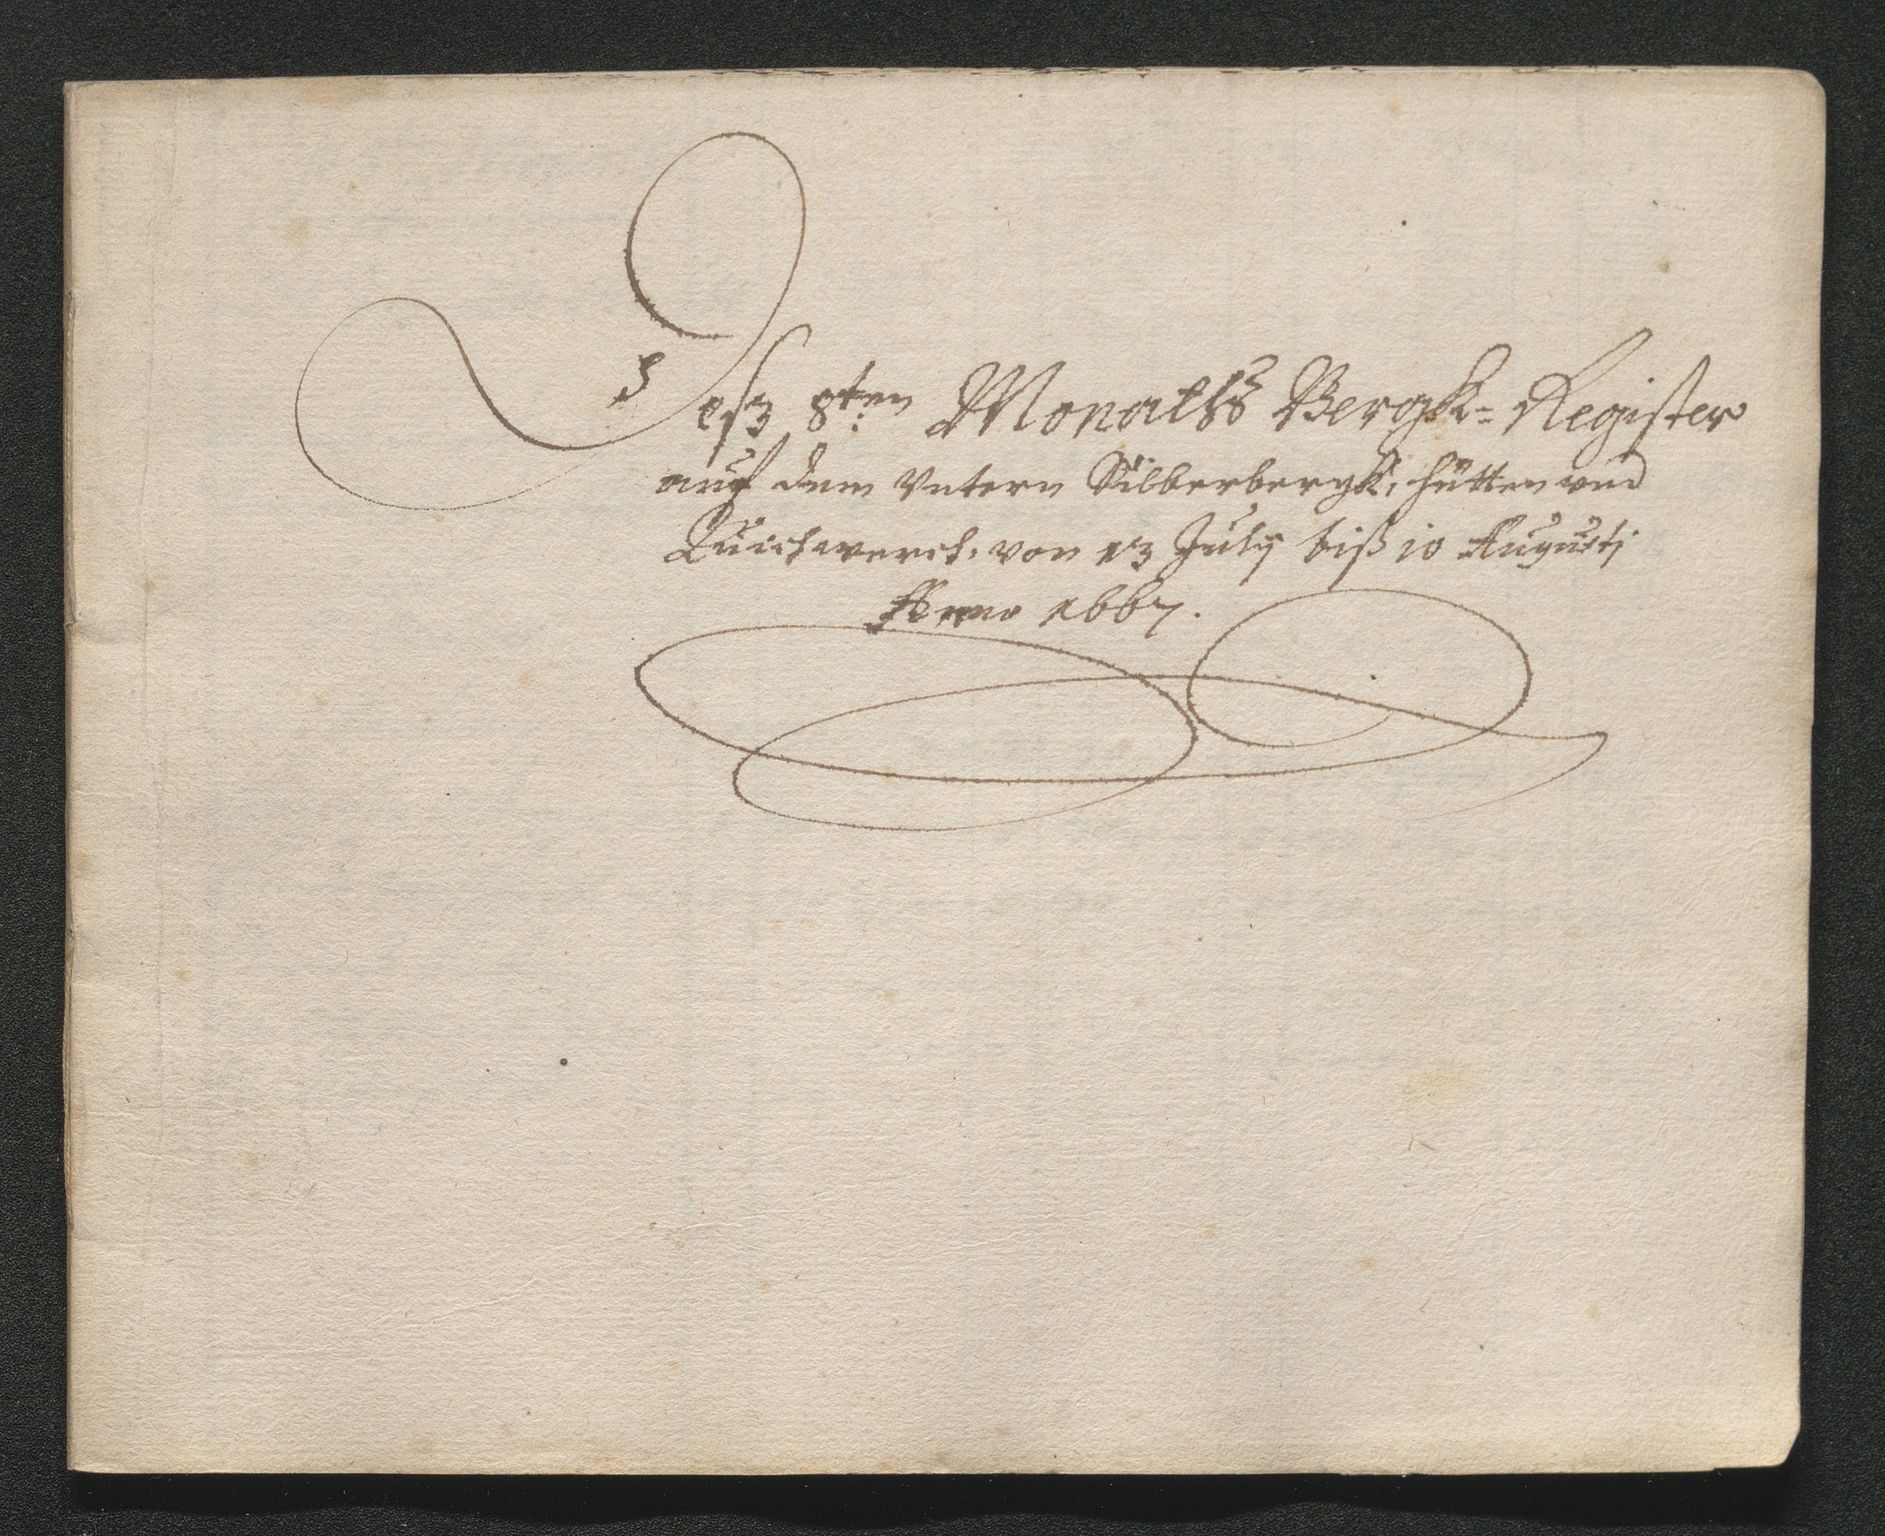 Deß 8ten Monatß Bergk= Register
auf dem Vntern Silberbergk, hütten vnd
Quickwerck, von 13 July biß 10 Augusti
Anno 1667.